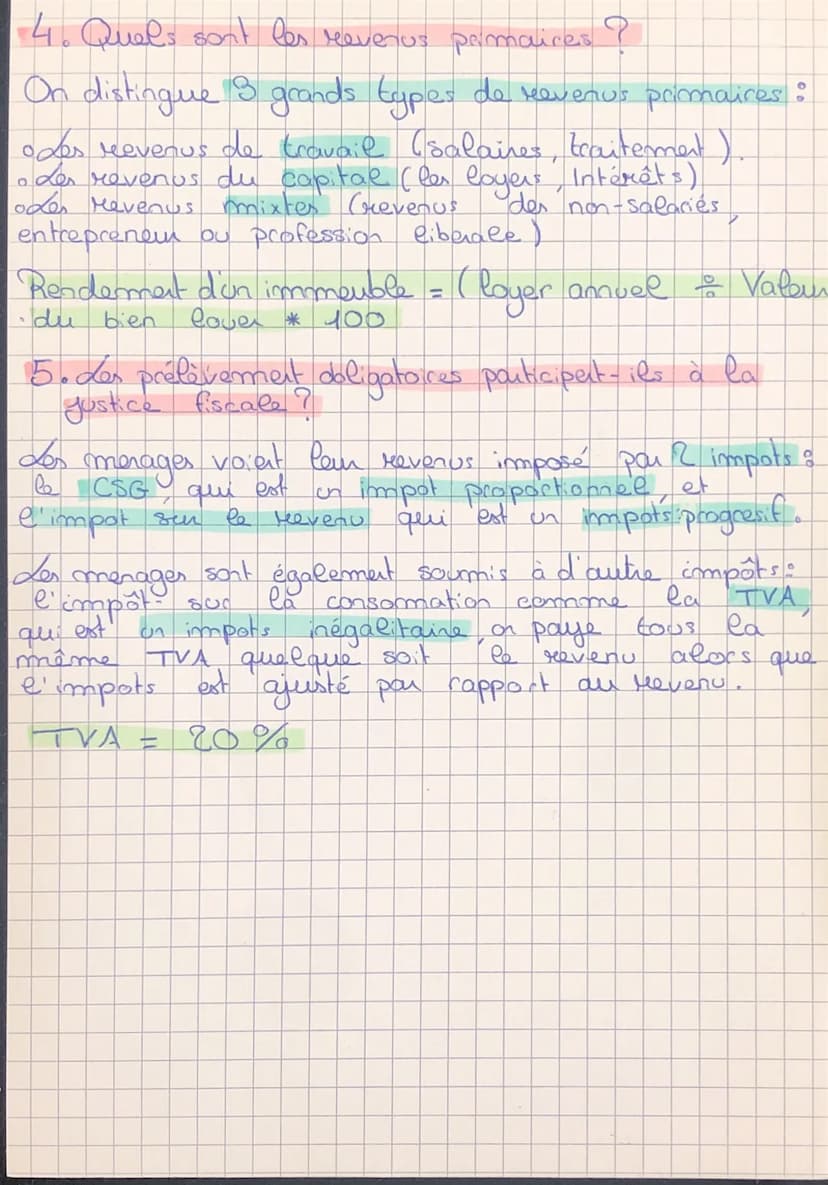 4. Quels sont les revenus primaires ?
On distingue 3 grands types de revenus primaires :
o Les revenus de travail (salaires, traitement).
o Les revenus du capital (les loyers, Intérêts)
o Les revenus mixtes (revenus des non-salariés,
entrepreneur ou profession liberale)
Rendement d'un immmeuble = (loyer annuel ÷ Valeur
du bien louer * 100
5. Les prélèvement obligatoires participent-ils à la
justice fiscale ?
Les menages voient leur revenus imposé par 2 impots :
la CSG, qui est un impot propoctionnel, et
l'impot sur le revenu qui est un impots progresif.
Les menages sont également soumis à d'autre impôts :
l'impôt sur la consommation comme la TVA,
qui est un impots inégalitaire, on paye tous la
même TVA quelque soit le revenu alors que
l'impots est ajusté par rapport au revenu.
TVA = 20 %